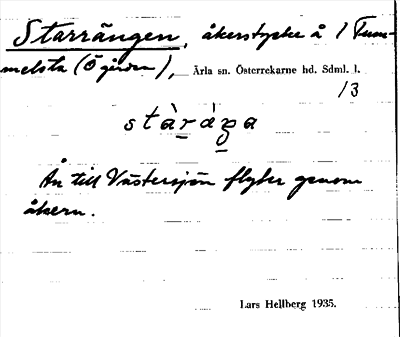 Starrängen, åkerstycke å 1 Tum-
melsta (Ögården), Ärla sn. Österrekarne hd. Sdml. l.
13
Ån till Västersjön flyter genom
åkern.
Lars Hellberg 1935.